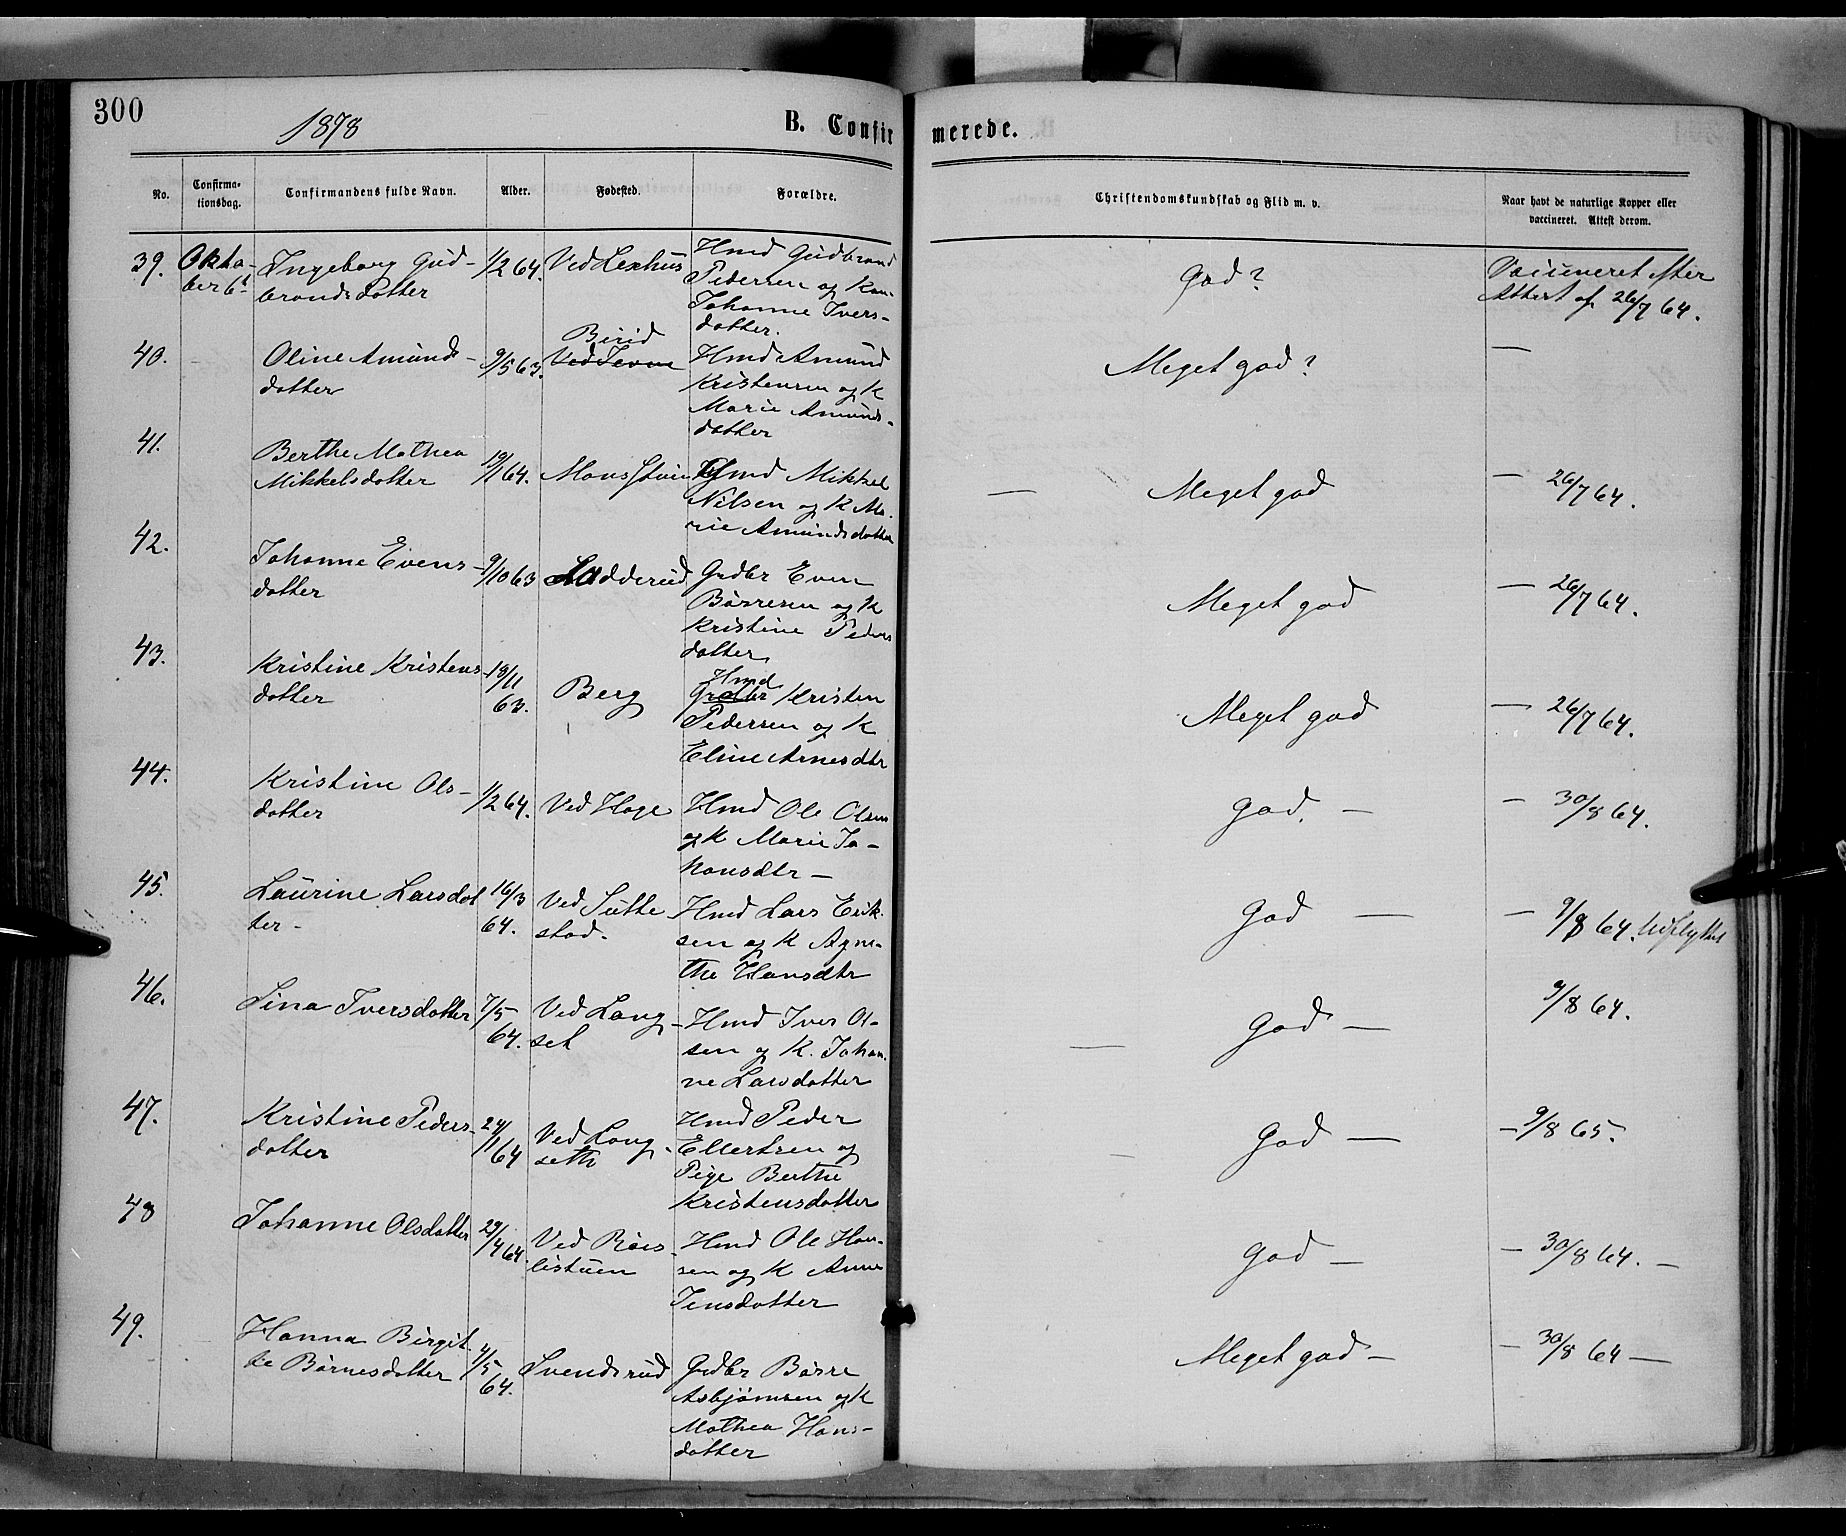 300
1878
B. Confirmerede.
No.
Confirma-
tionsdag.
Confirmandens fulde Navn.
Alder.
Fødested.
Forældre.
Christendomskundskab og Flid m. v.
Naar havt de naturlige Kopper eller
vaccineret. Attest derom.
39. Okto- Ingeborg Gud- 1/2 64. Ved Lexhus Hmd Gudbrand
ber 6te brandsdotter Pedersen og Kon.
Johanne Ivers-
dotter.
God? Vaccineret efter
Attest af 26/7 64.
40. Oline Amunds- 9/5 63. Birid Hmd Amund
dotter Kristensen og K
Marie Amunds-
dotter
Meget god? —
41. Berthe Mathea
Mikkelsdotter 19/1 64. Hmd Mikkel
Nilsen og K Ma-
rie Amundsdotter
— Meget god — 26/7 64.
42. Johanne Evens- 9/10 63 Ladderud Grdbr Even
dotter Børresen og K
Kristine Peders
dotter
Meget god — 26/7 64.
43. Kristine Kristens- 19/11 Hmd
dotter 63. Berg Grdbr Kristen
Pedersen og K
Eline Arnesdtr
Meget god — 26/7 64.
44. Kristine Ols- 1/2 64. Ved Hage Hmd Ole Olsen
dotter og K Marie Jo-
hansdtr —
God. — — 30/8 64.
45. Laurine Larsdot 16/3 Ved Sutte- Hmd Lars Erik-
ter- 64. stad. sen og K Agne-
the Hansdtr
God — — 9/8 64. Udflyttet
46. Lina Iversdotter 7/5 Ved Lang- Hmd Iver Ol-
64. set sen og K. Johan-
ne Larsdotter
— God — 9/8 64.
47. Kristine Peders- 24/1 Ved Lang- Hmd Peder
dotter 64 seth Ellertsen og
Pige Berthe
Kristensdotter
— God — — 9/8 65.
48 Johanne Olsdotter 29/4 64. Ved Røis- Hmd Ole Han-
listuen sen og K Anne
Jensdotter
God — — 30/8 64. —
49. Hanna Birgit-
te Børresdotter 4/5 64. Svendsrud Grdbr Børre
Asbjørnsen og K
Mathea Hans-
dotter
Meget god — — 30/8 64 —